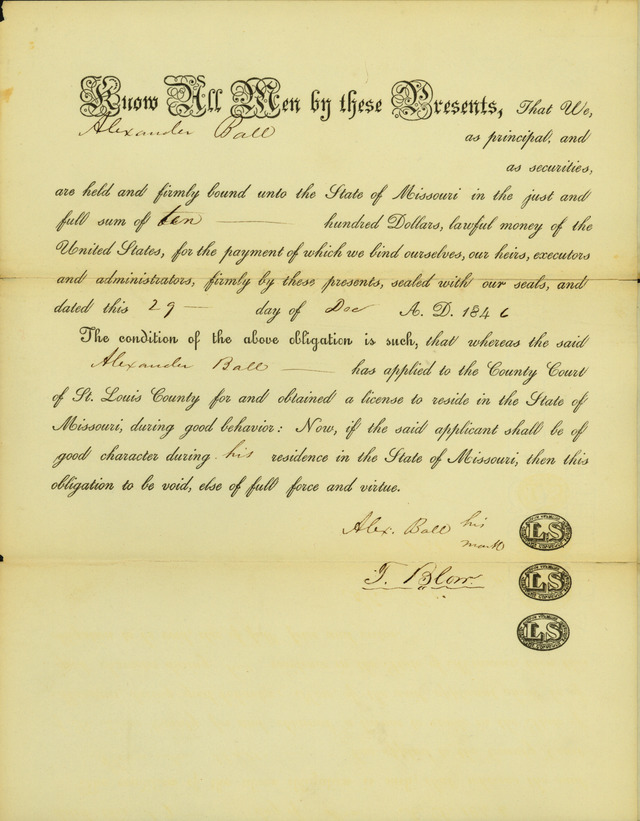 Know All Men by these Presents, That We,
Alexander Ball as principal, and
as securities,
are held and firmly bound unto the State of Missouri in the just and
full sum of ten hundred Dollars, lawful money of the
United States, for the payment of which we bind ourselves, our heirs, executors
and administrators, firmly by these presents, sealed with our seals, and
dated this 29 day of Dec A. D. 1846
The condition of the above obligation is such, that whereas the said
Alexander Ball has applied to the County Court
of St. Louis County for and obtained a license to reside in the State of
Missouri, during good behavior: Now, if the said applicant shall be of
good character during his residence in the State of Missouri, then this
obligation to be void, else of full force and virtue.
Alex. Ball his mark LS
T. Blow LS
LS